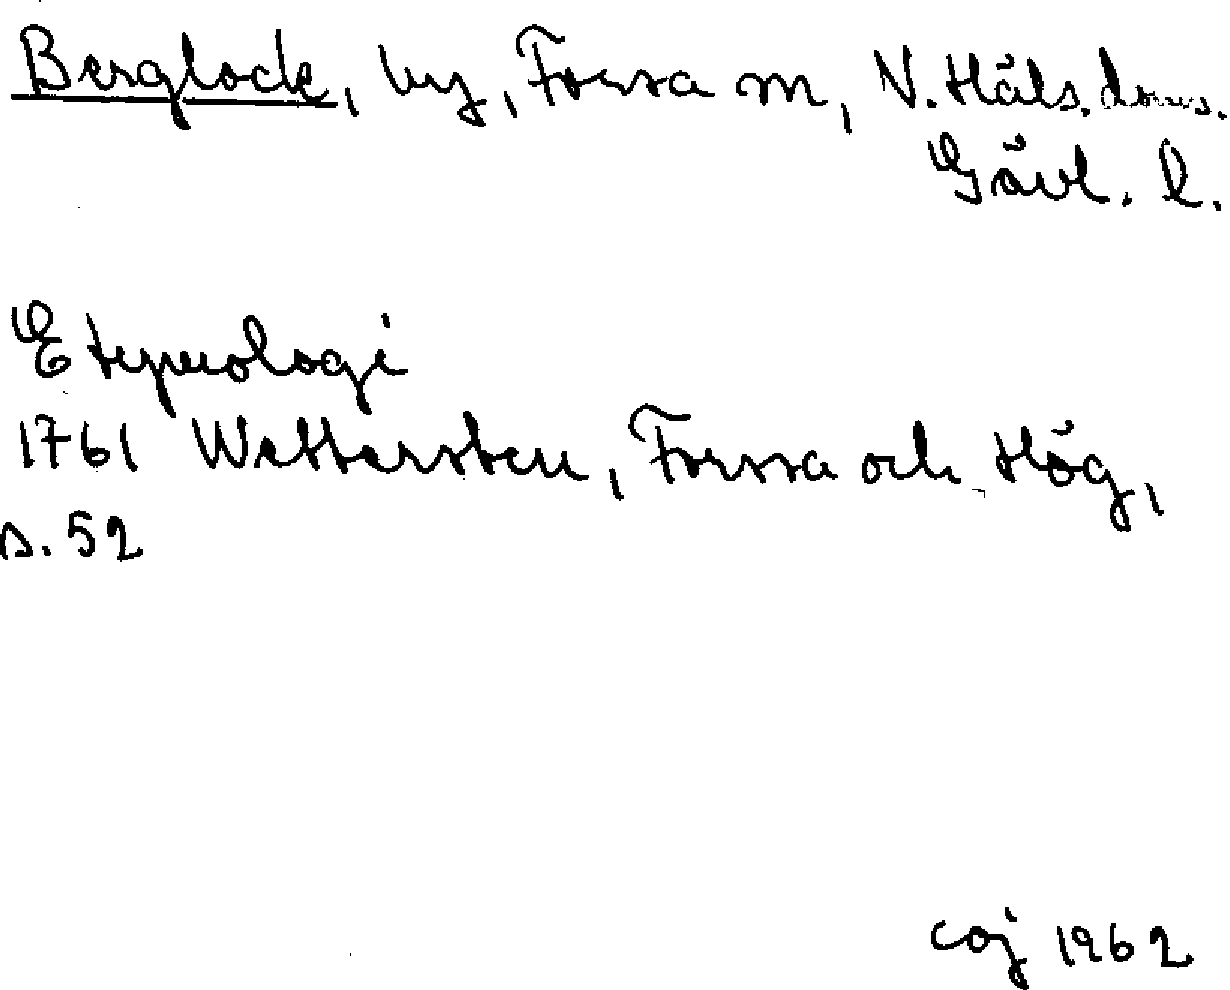 Berglock, by, Forssa sn, N. Häls. doms.
Gävl. l.
Etymologi
1761 Wettersten, Forssa och Hög,
s. 52
coj 1962